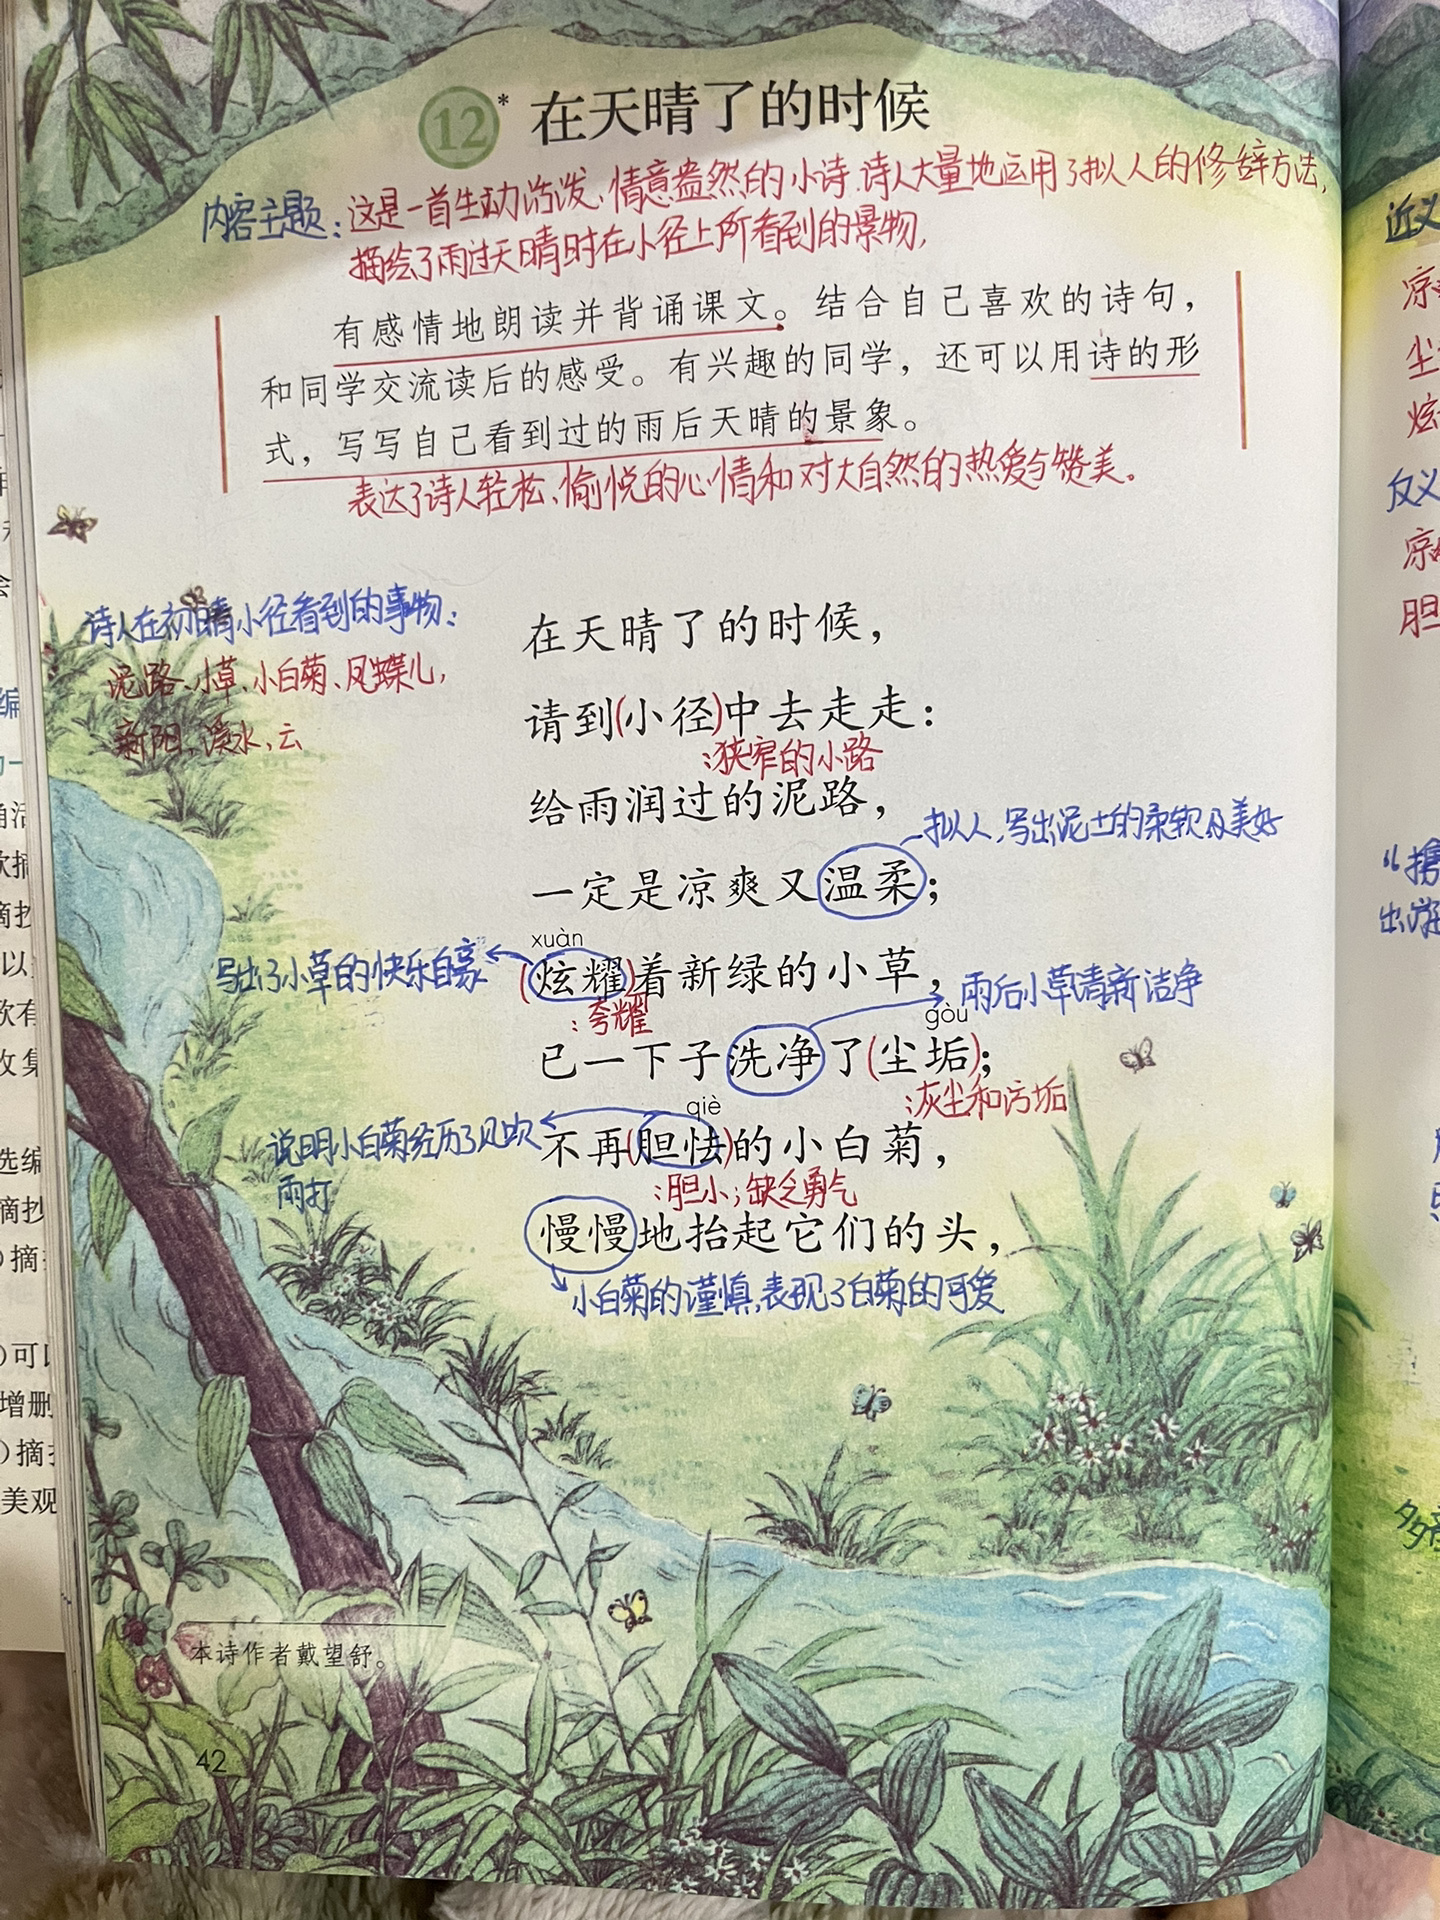 12* 在天晴了的时候
内容主题：这是一首生动活泼、情意盎然的小诗.诗人大量地运用了拟人的修辞方法,
描绘了雨过天晴时在小径上所看到的景物,
有感情地朗读并背诵课文。结合自己喜欢的诗句，
和同学交流读后的感受。有兴趣的同学，还可以用诗的形
式，写写自己看到过的雨后天晴的景象。
表达了诗人轻松、愉悦的心情和对大自然的热爱与赞美。
诗人在初晴小径看到的事物：
泥路、小草、小白菊、凤蝶儿,
新阳,溪水,云
在天晴了的时候，
请到(小径)中去走走：
:狭窄的小路
给雨润过的泥路，
拟人,写出泥土的柔软及美好
一定是凉爽又温柔；
xuàn
写出了小草的快乐自豪
(炫耀)着新绿的小草，
:夸耀
雨后小草清新洁净
gòu
已一下子洗净了(尘垢)；
:灰尘和污垢
qiè
说明小白菊经历了风吹
雨打
不再(胆怯)的小白菊，
:胆小;缺乏勇气
慢慢地抬起它们的头，
小白菊的谨慎,表现了白菊的可爱
本诗作者戴望舒。
42
近义
凉
尘
炫
反义
凉
胆
“携
出游
编
摘抄
以
收集
选编
摘抄
)可以
增删
美观